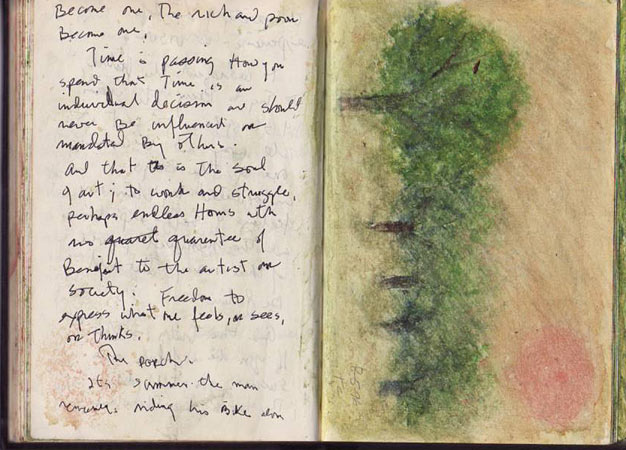 Become one, The rich and poor
Become one.
Time is passing How you
spend that Time is an
individual decision and should
never Be influenced or
mandated By others.
And that is The Soul
of art; to work and struggle,
perhaps endless Hours with
no guarentee of
Benefit to the artist or
society. Freedom to
express what one feels, or sees,
or Thinks.
The porch.
Its summer. the man
remembers riding his Bike down